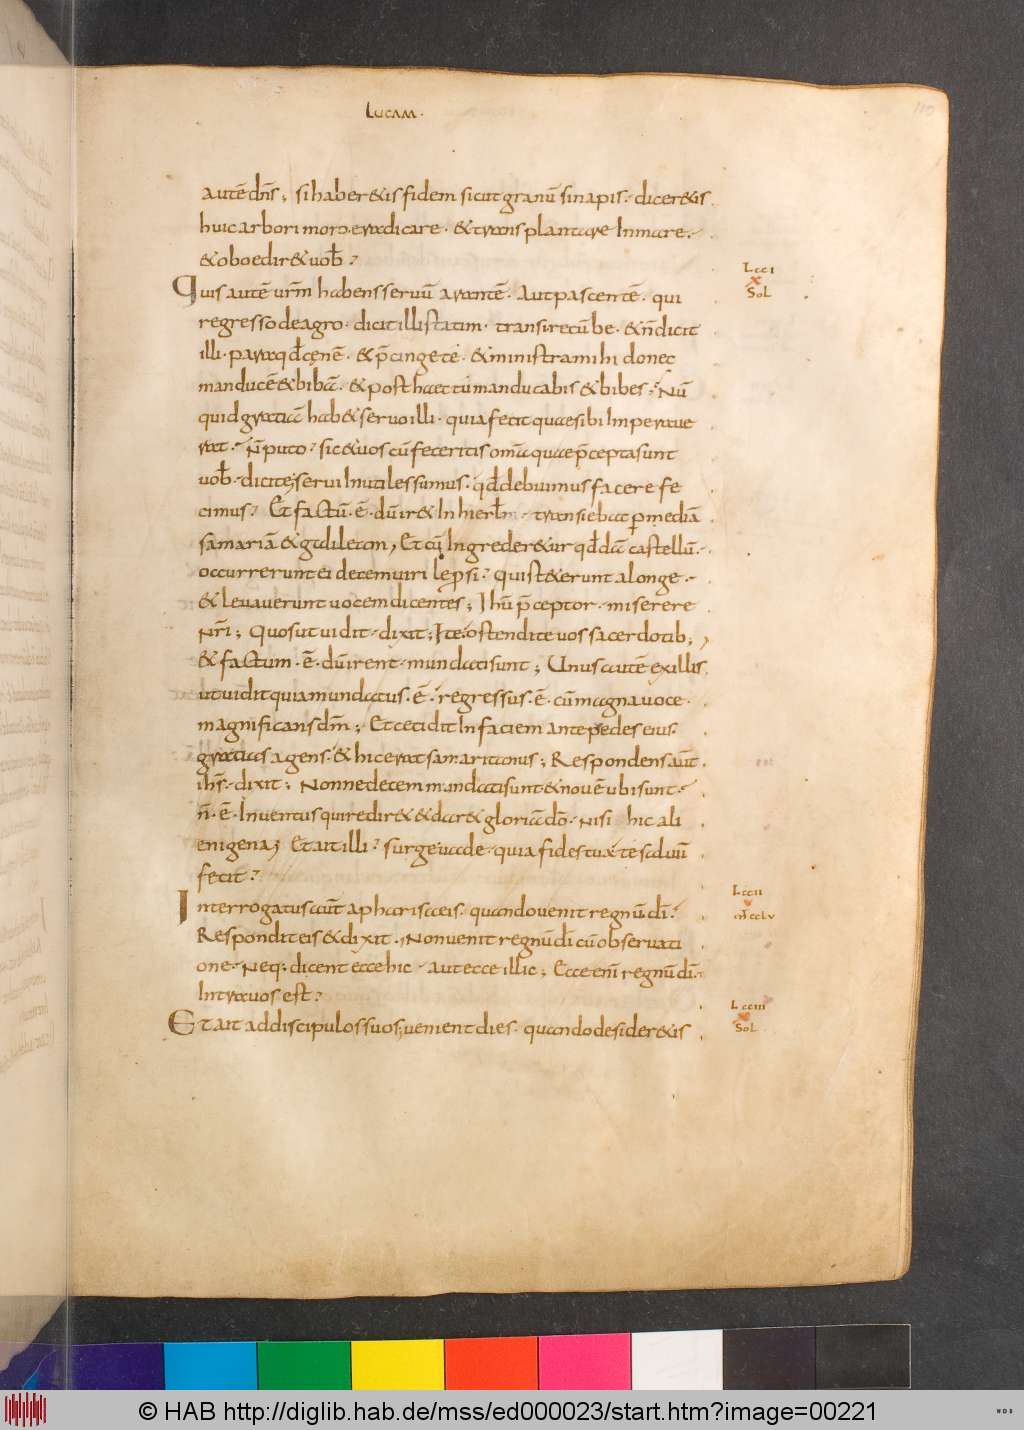 LUCAM·
110
autē dn̄s; si haberetis fidem sicut granū sinapis· diceretis
huic arbori moro eradicare· et transplantare In mare·
et oboediret uob̄
Quis autē ur̄m habens seruū arantē· Aut pascentē· qui
regresso de agro· dicit illi statim· transi recūbe· et n̄ dicit
illi· para qd̄ cęnē· et p̄cinge te· et ministra mihi donec
manducē et bibā· et post haec tu manducabis et bibes; Nū
quid gratiā habet seruo illi· quia fecit quae sibi Impera ue
rat· N̄ puto· sic et uos cū feceritis omā quae p̄cepta sunt
uob̄· dicite; serui Inutiles sumus· qd̄ debuimus facere fe
cimus· Et factū· ē· dū iret In hierl̄m· transiebat p mediā
samariā et galileam, Et cū Ingrederetur qd̄dā castellū·
occurrerunt ei decem uiri leprosi· qui steterunt a longe·
et leuauerunt uocem dicentes; Ihū p̄ceptor· miserere
Nr̄i; Quos ut uidit· dixit; Ite ostendite uos sacerdotib;
et factum· ē· dū irent· mundati sunt; Unus autē ex illis
ut uidit quia mundatus· ē· regressus· ē· cū magna uoce·
magnificans dm̄; Et cecidit In faciem ante pedes eius·
gratias agens· et hic erat samaritanus; Respondens aūt
ih̄s· dixit; Nonne decem mundati sunt et nouē ubi sunt·
n̄· ē· Inuentus qui rediret et daret gloriā dō· nisi hic ali
enigena; Et ait illi· surge uade· quia fides tua te saluū
fecit·
Interrogatus aūt a pharisaeis· quando uenit regnū dī·
Respondit eis et dixit· Non uenit regnū dī cū obseruati
one· Neq; dicent ecce hic· aut ecce illic; Ecce enī regnū dī·
Intra uos est·
Et ait ad discipulos suos; uenient dies· quando desideretis
L cci
X
SoL
L ccii
V
mT cclv
L cciii
X
SoL
© HAB http://diglib.hab.de/mss/ed000023/start.htm?image=00221
WDB